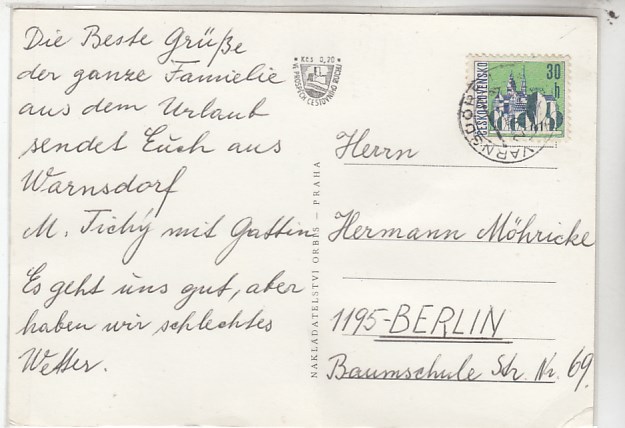 Die Beste Grüße
der ganze Famielie
aus dem Urlaub
sendet Euch aus
Warnsdorf
M. Tichý mit Gattin
Es geht uns gut, aber
haben wir schlechtes
Wetter.
Kčs 0,20
VE PROSPĚCH CESTOVNÍHO RUCHU
NAKLADATELSTVÍ ORBIS – PRAHA
30 h
ČESKOSLOVENSKO
VARNSDORF
Herrn
Hermann Möhricke
1195-BERLIN
Baumschule Str. Nr. 69.